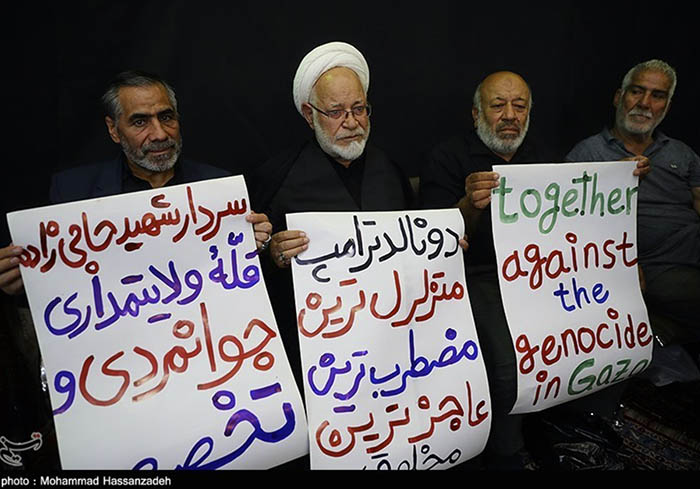 سردار شهید حاجی زاده
قلّهٔ ولایتمداری
جوانمردی و
تخصص
دونالد ترامپ
متزلزل ترین
مضطرب ترین
عاجز ترین
together
against
the
genocide
in Gaza
photo : Mohammad Hassanzadeh